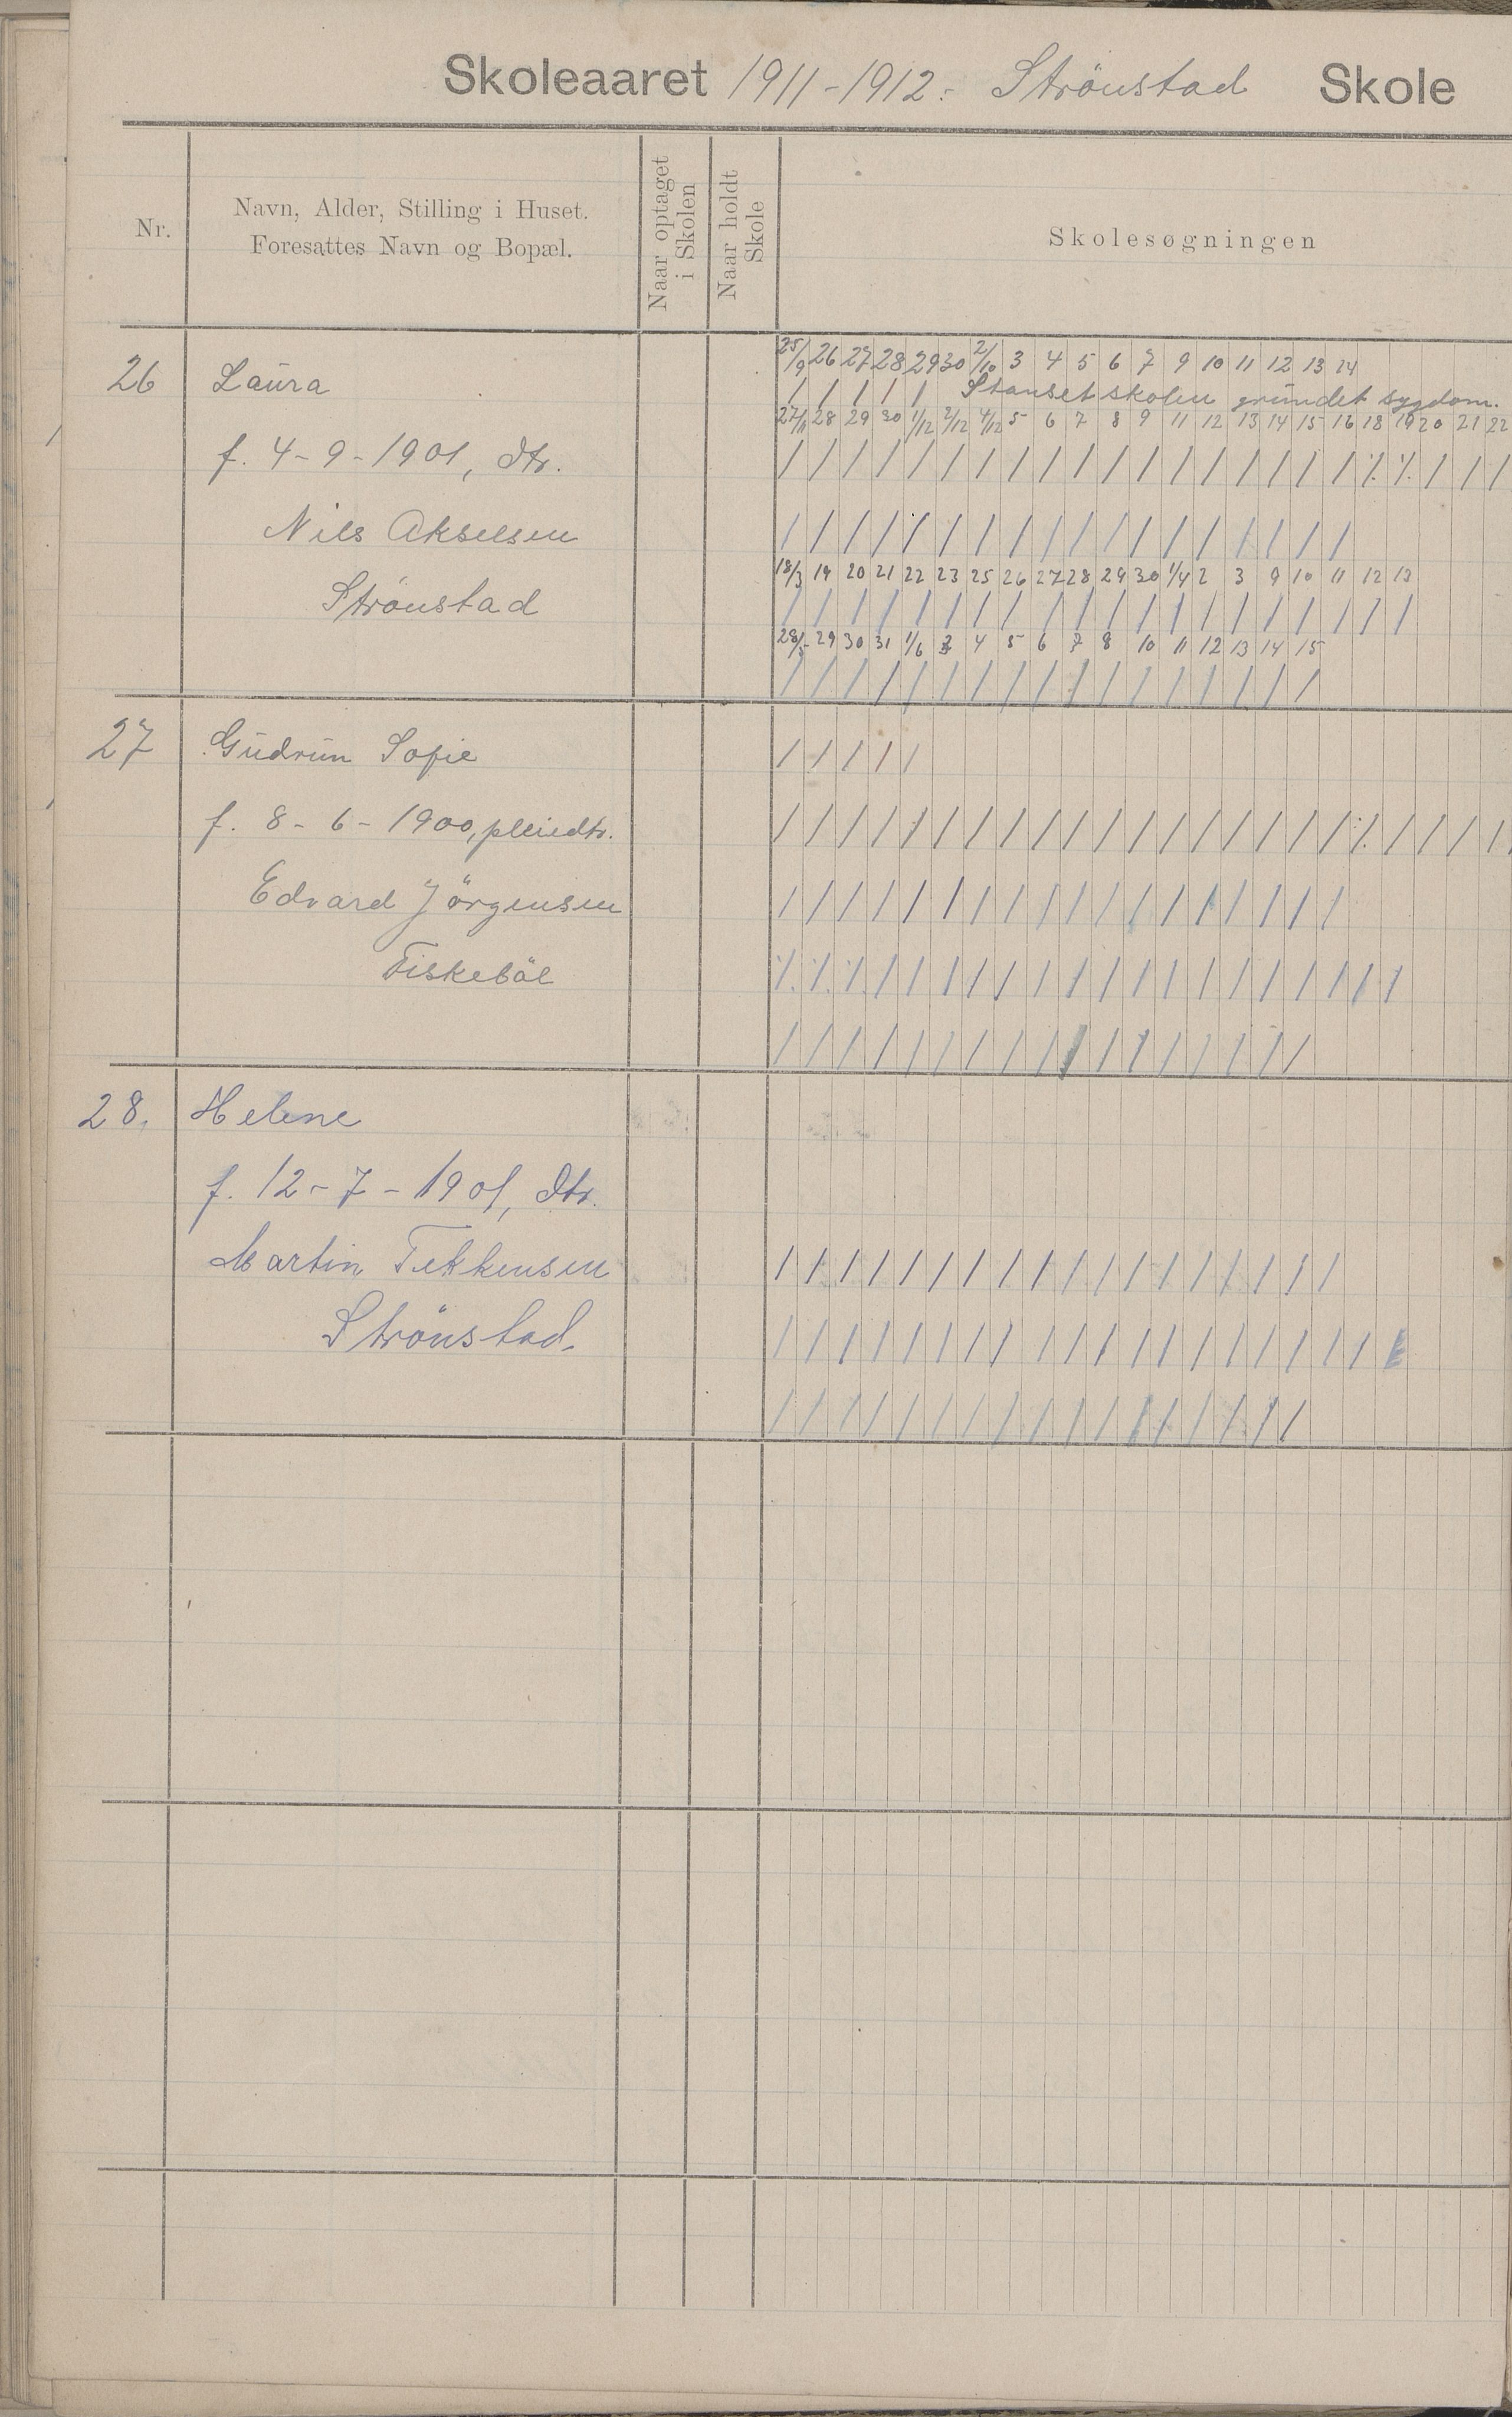 Skoleaaret 1911-1912.- Strönstad Skole
Nr.
Navn, Alder, Stilling i Huset.
Foresattes Navn og Bopæl.
Naar optaget
i Skolen
Naar holdt
Skole
Skolesøgningen
25/9 26 27 28 29 30 2/10 3 4 5 6 7 9 10 11 12 13 14
26 Laura
/ / / / / Stanset skolen grundet sygdom.
27/11 28 29 30 1/12 2/12 4/12 5 6 7 8 9 11 12 13 14 15 16 18 19 20 21 22
f. 4-9-1901, dtr.
Nils Akselsen
18/3 19 20 21 22 23 25 26 27 28 29 30 1/4 2 3 9 10 11 12 13
Strönstad
28/5 29 30 31 1/6 3 4 5 6 7 8 10 11 12 13 14 15
27 Gudrun Sofie
f. 8-6-1900, pleiedtr.
Edvard Jörgensen
Fiskeböl
28. Helene
f. 12-7-1901, dtr.
Martin Tekkensen
Strönstad.